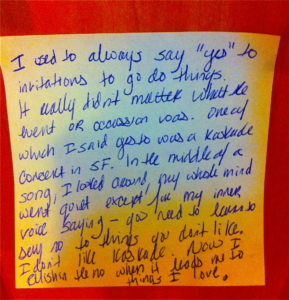 I used to always say "yes" to
invitations to go do things.
It really didn't matter what the
event or occassion was. One of
which I said yes to was a Kaskade
Concert in SF. In the middle of a
song, I looked around, my whole mind
went quiet except for my inner
voice saying - you need to learn to
say no to things you don't like.
I don't like Kaskade. Now I
the no when it leads me to
things I love.